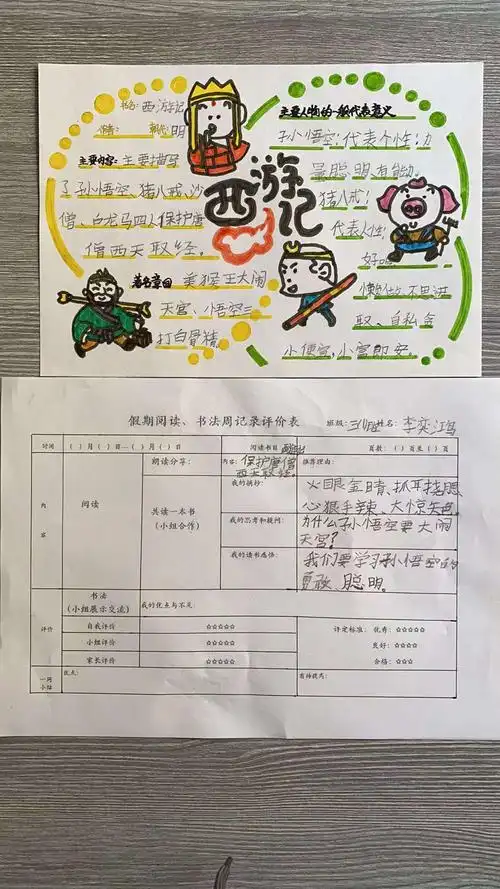 书名：西游记
作者： 朝代：明
主要内容：主要描写
了孙悟空、猪八戒、沙
僧、白龙马四人保护唐
僧西天取经。
著名章回 美猴王大闹
天宫、悟空三
打白骨精
西游记
主要人物的一般代表意义
孙悟空：代表个性：力
量聪明有能动。
猪八戒：
代表人性：
好吃
懒做、不思进
取、自私贪
小便宜，小富即安。
假期阅读、书法周记录评价表
班级： 姓名：李奕鸿
时间 （ ）月（ ）日—（ ）月（ ）日 阅读书目 页数：（ ）页至（ ）页
内容
阅读
朗读分享：
内容：保护唐僧
西天取经。
推荐理由：
共读一本书
（小组合作）
我的摘抄：
火眼金睛、抓耳挠腮
心狠手辣、大惊失色
我的思考和提问：
为什么孙悟空要大闹
天宫？
我的读书感悟：
我们要学习孙悟空的
勇敢、聪明。
书法
（小组展示交流）
我的优点与不足：
评价
自我评价 ☆☆☆☆☆
小组评价 ☆☆☆☆☆
家长评价 ☆☆☆☆☆
评定标准：优秀：☆☆☆☆☆
良好：☆☆☆☆
合格：☆☆☆
一周
小结
优点：
有待提高：